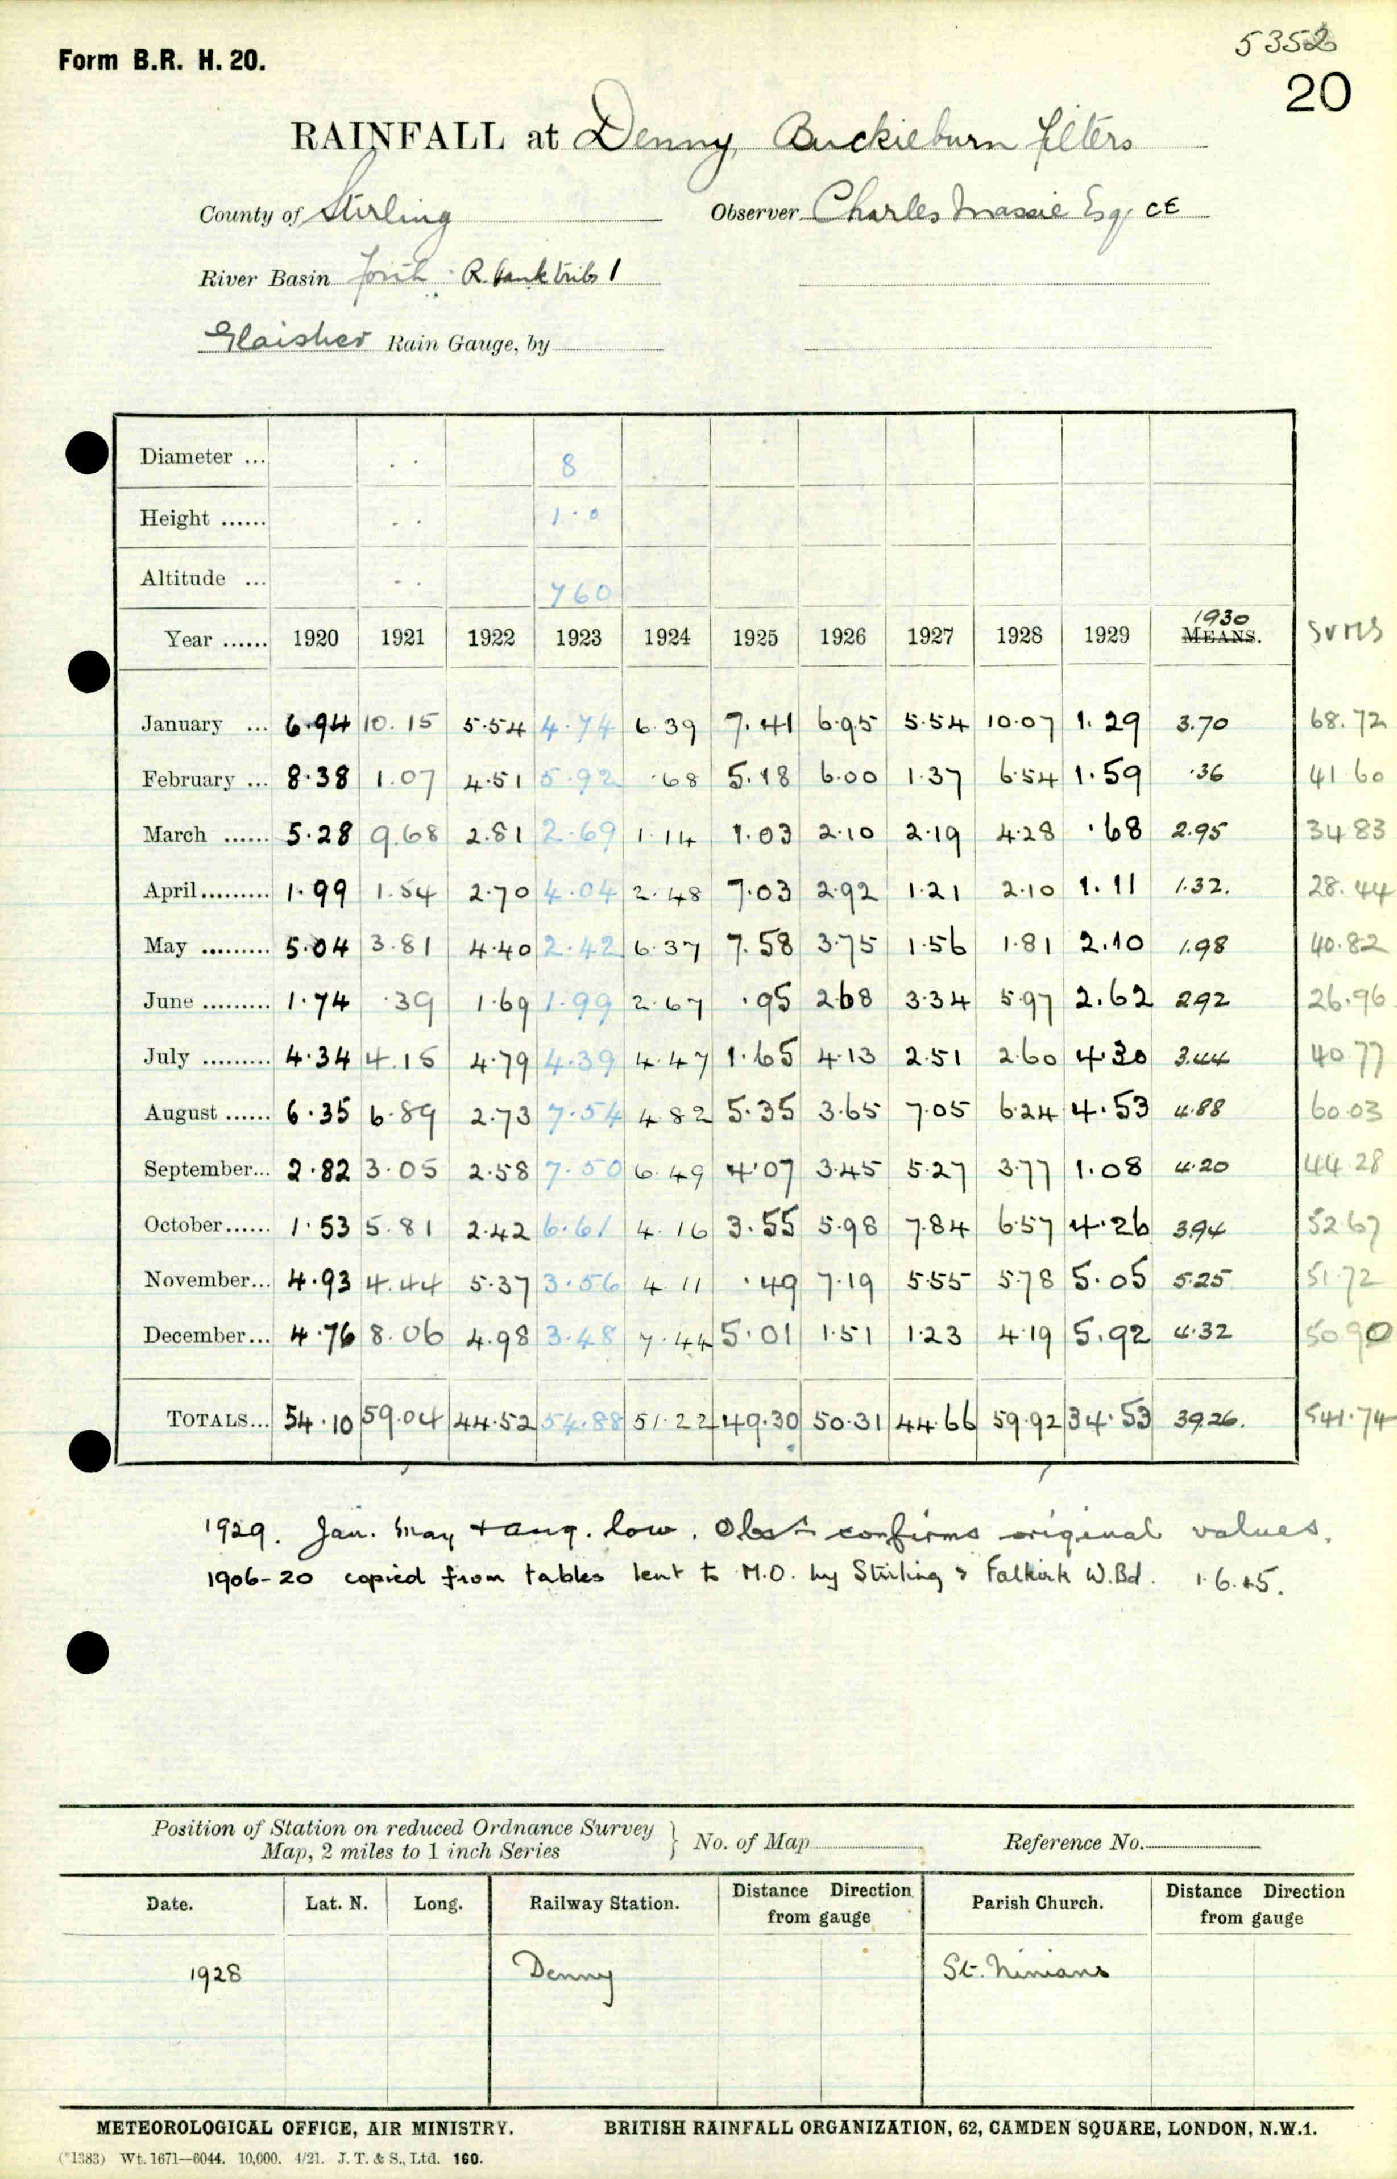 5352
Form B.R. H. 20.
20
RAINFALL at Denny, Buckieburn filters
County of Stirling Observer Charles Massie Esq. CE
River Basin Forth
Glaisher Rain Gauge, by
Diameter ... 8
Height ...... 1.0
Altitude ... 760
Year ...... 1920 1921 1922 1923 1924 1925 1926 1927 1928 1929 1930 MEANS. SUMS
January ... 6.94 10.15 5.54 4.74 6.39 7.41 6.95 5.54 10.07 1.29 3.70 68.72
February ... 8.38 1.07 4.51 5.92 .68 5.18 6.00 1.37 6.54 1.59 .36 41.60
March ...... 5.28 9.68 2.81 2.69 1.14 1.03 2.10 2.19 4.28 .68 2.95 34.83
April ......... 1.99 1.54 2.70 4.04 2.48 7.03 2.92 1.21 2.10 1.11 1.32. 28.44
May ......... 5.04 3.81 4.40 2.42 6.37 7.58 3.75 1.56 1.81 2.10 1.98 40.82
June ......... 1.74 .39 1.69 1.99 2.67 .95 2.68 3.34 5.97 2.62 2.92 26.96
July ......... 4.34 4.15 4.79 4.39 4.47 1.65 4.13 2.51 2.60 4.30 3.44 40.77
August ...... 6.35 6.89 2.73 7.54 4.82 5.35 3.65 7.05 6.24 4.53 4.88 60.03
September... 2.82 3.05 2.58 7.50 6.49 4.07 3.45 5.27 3.77 1.08 4.20 44.28
October...... 1.53 5.81 2.42 6.61 4.16 3.55 5.98 7.84 6.57 4.26 3.94 52.67
November... 4.93 4.44 5.37 3.56 4.11 .49 7.19 5.55 5.78 5.05 5.25 51.72
December... 4.76 8.06 4.98 3.48 7.44 5.01 1.51 1.23 4.19 5.92 4.32 50.90
TOTALS... 54.10 59.04 44.52 54.88 51.22 49.30 50.31 44.66 59.92 34.53 39.26. 541.74
1929. Jan. May + Aug. low. Obsr confirms original values.
1906-20 copied from tables lent to M.O. by Stirling & Falkirk W.Bd. 1.6.45.
Position of Station on reduced Ordnance Survey
Map, 2 miles to 1 inch Series } No. of Map Reference No.
Date. Lat. N. Long. Railway Station. Distance Direction from gauge Parish Church. Distance Direction from gauge
1928 Denny St. Ninians
METEOROLOGICAL OFFICE, AIR MINISTRY. BRITISH RAINFALL ORGANIZATION, 62, CAMDEN SQUARE, LONDON, N.W.1.
(*1383) Wt. 1671—6044. 10,000. 4/21. J. T. & S., Ltd. 160.